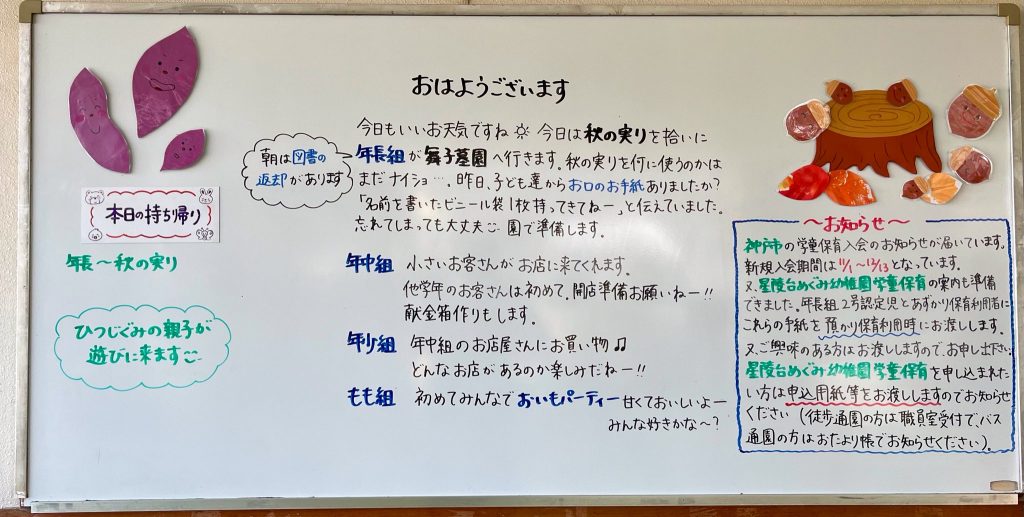 おはようございます
今日もいいお天気ですね☼ 今日は秋の実りを拾いに
年長組が舞子墓園へ行きます。秋の実りを何に使うのかは
まだナイショ…。昨日、子ども達からお口のお手紙ありましたか?
「名前を書いたビニール袋1枚持ってきてねー」と伝えていました。
忘れてしまっても大丈夫 園で準備します。
朝は図書の
返却があります
本日の持ち帰り
年長〜秋の実り
ひつじぐみの親子が
遊びに来ます
年中組 小さいお客さんがお店に来てくれます。
他学年のお客さんは初めて。開店準備お願いねー!!
献金箱作りもします。
年少組 年中組のお店屋さんにお買い物♫
どんなお店があるのか楽しみだねー!!
もも組 初めてみんなでおいもパーティー 甘くておいしいよー
みんな好きかな〜?
〜お知らせ〜
神戸市の学童保育入会のお知らせが届いています。
新規入会期間は11/1〜12/13となっています。
又、星陵台めぐみ幼稚園学童保育の案内も準備
できました。年長組、2号認定児とあずかり保育利用者に
これらの手紙を預かり保育利用時にお渡しします。
又、ご興味のある方はお渡ししますので、お申し出下さい。
星陵台めぐみ幼稚園学童保育を申し込まれた
い方は申込用紙等をお渡ししますのでお知らせ
ください(徒歩通園の方は職員室受付で、バス
通園の方はおたより帳でお知らせください)。